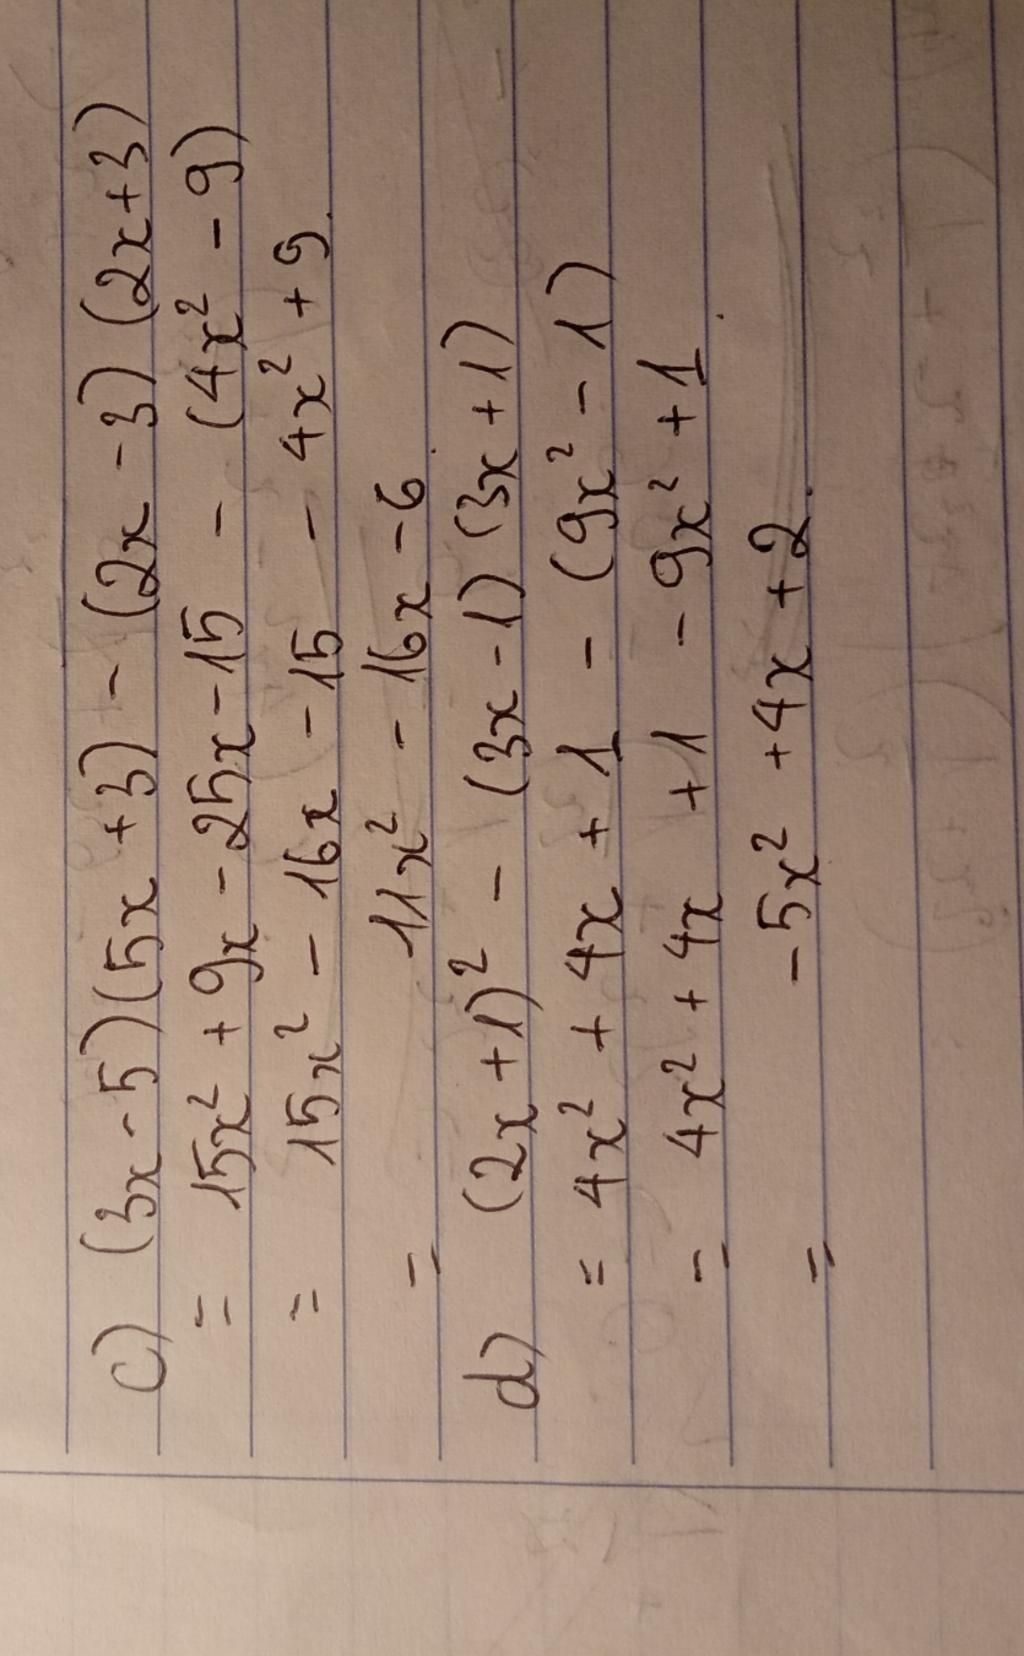 c) (3x-5)(5x+3) - (2x-3)(2x+3)
= 15x² + 9x - 25x - 15 - (4x² - 9)
= 15x² - 16x - 15 - 4x² + 9
= 11x² - 16x - 6
d) (2x+1)² - (3x-1)(3x+1)
= 4x² + 4x + 1 - (9x² - 1)
= 4x² + 4x + 1 - 9x² + 1
= -5x² + 4x + 2